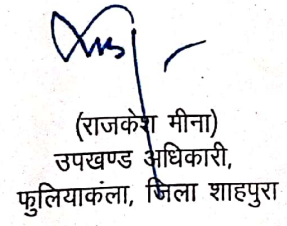 (राजकेश मीना)
उपखण्ड अधिकारी,
फुलियाकंला, जिला शाहपुरा